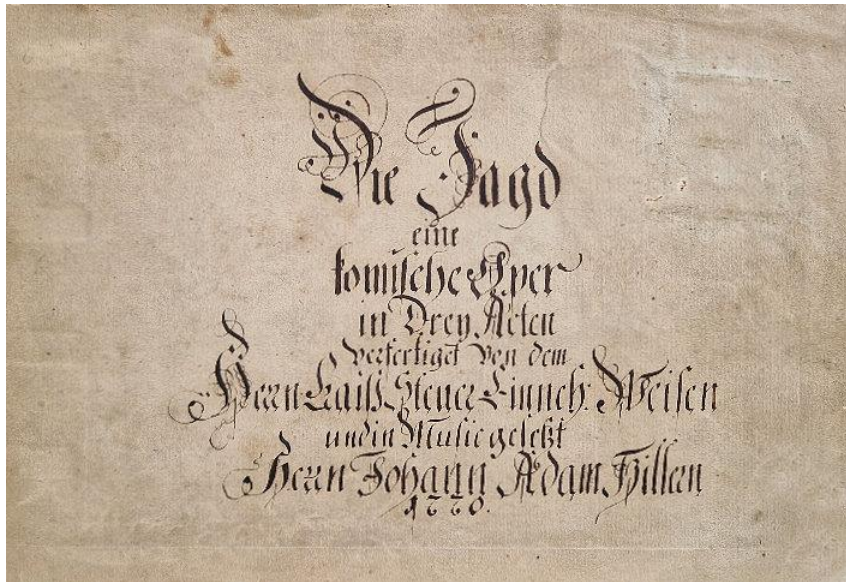 Die Jagd
eine
komische Oper
in Drey Acten
verfertiget von dem
Herrn Craiß Steuer Einneh: Weisen
und in Music gesetzt
Herrn Johann Adam Hillern
1770.